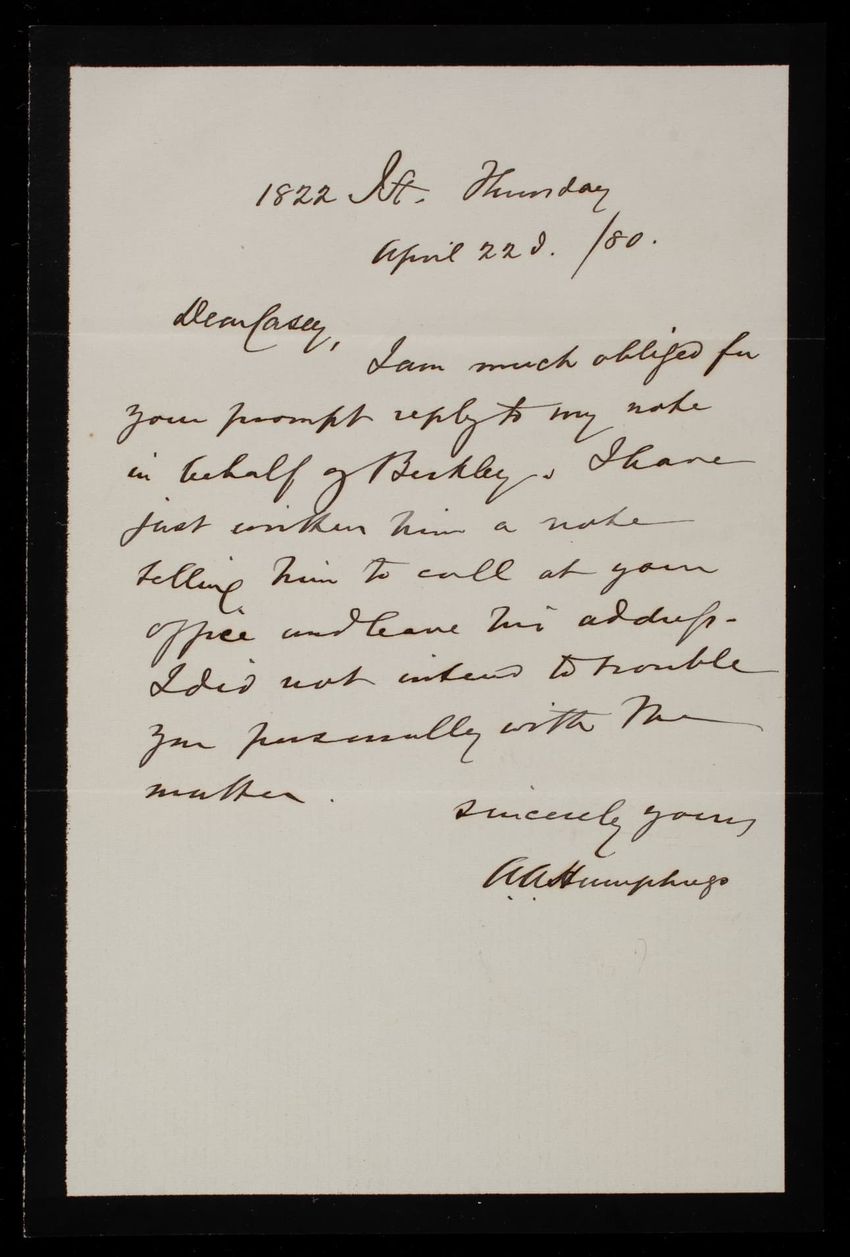 1822 I St. Thursday
April 22d. /80.
Dear Casey,
I am much obliged for
your prompt reply to my note
in behalf of Berkley. I have
just written him a note
telling him to call at your
office and leave his address.
I did not intend to trouble
you personally with the
matter.
Sincerely yours
A A Humphreys